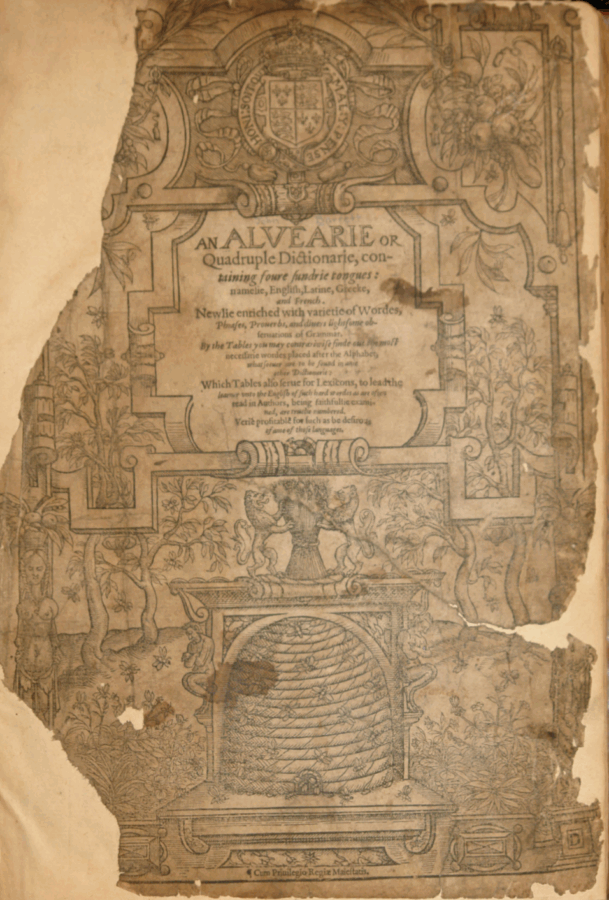 HONI SOIT QUI MAL Y PENSE
AN ALVEARIE OR
Quadruple Dictionarie, con-
taining foure sundrie tongues:
namelie, English, Latine, Greeke,
and French.
Newlie enriched with varietie of Wordes,
Phrases, Prouerbs, and diuers lightsome ob-
seruations of Grammar.
By the Tables you may contrariwise finde out the most
necessarie wordes placed after the Alphabet,
whatsoeuer are to be found in anie
other Dictionarie:
Which Tables also seruing for Lexicons, to lead the
learner vnto the English of such hard wordes as are often
read in Authors, being faithfullie exami-
ned, are truelie numbered.
Verie profitable for such as be desirous
of anie of those languages.
¶ Cum Priuilegio Regiæ Maiestatis.